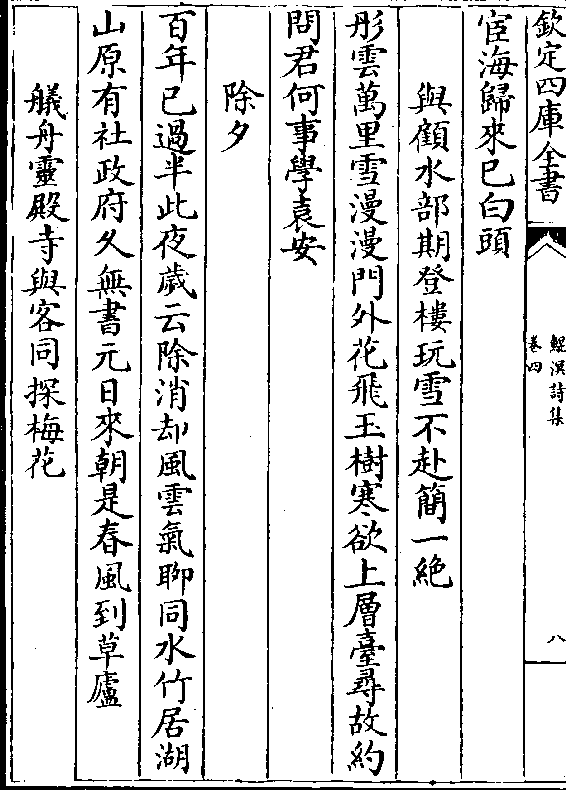 欽定四庫全書
鯤溟詩集
卷四
八
宦海歸來已白頭
與顧水部期登樓玩雪不赴簡一絶
彤雲萬里雪漫漫門外花飛玉樹寒欲上層臺尋故約
問君何事學袁安
除夕
百年已過半此夜歲云除消却風雲氣聊同水竹居湖
山原有社政府久無書元日來朝是春風到草廬
艤舟靈殿寺與客同探梅花